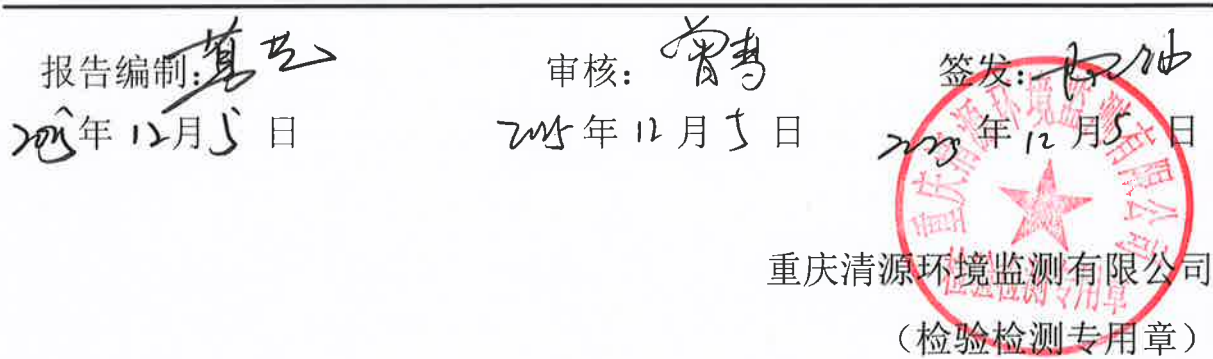 报告编制: 审核: 曾 签发:
年12月5日 2025年12月5日 年12月5日
重庆清源环境监测有限公司
检验检测专用章
重庆清源环境监测有限公司
（检验检测专用章）